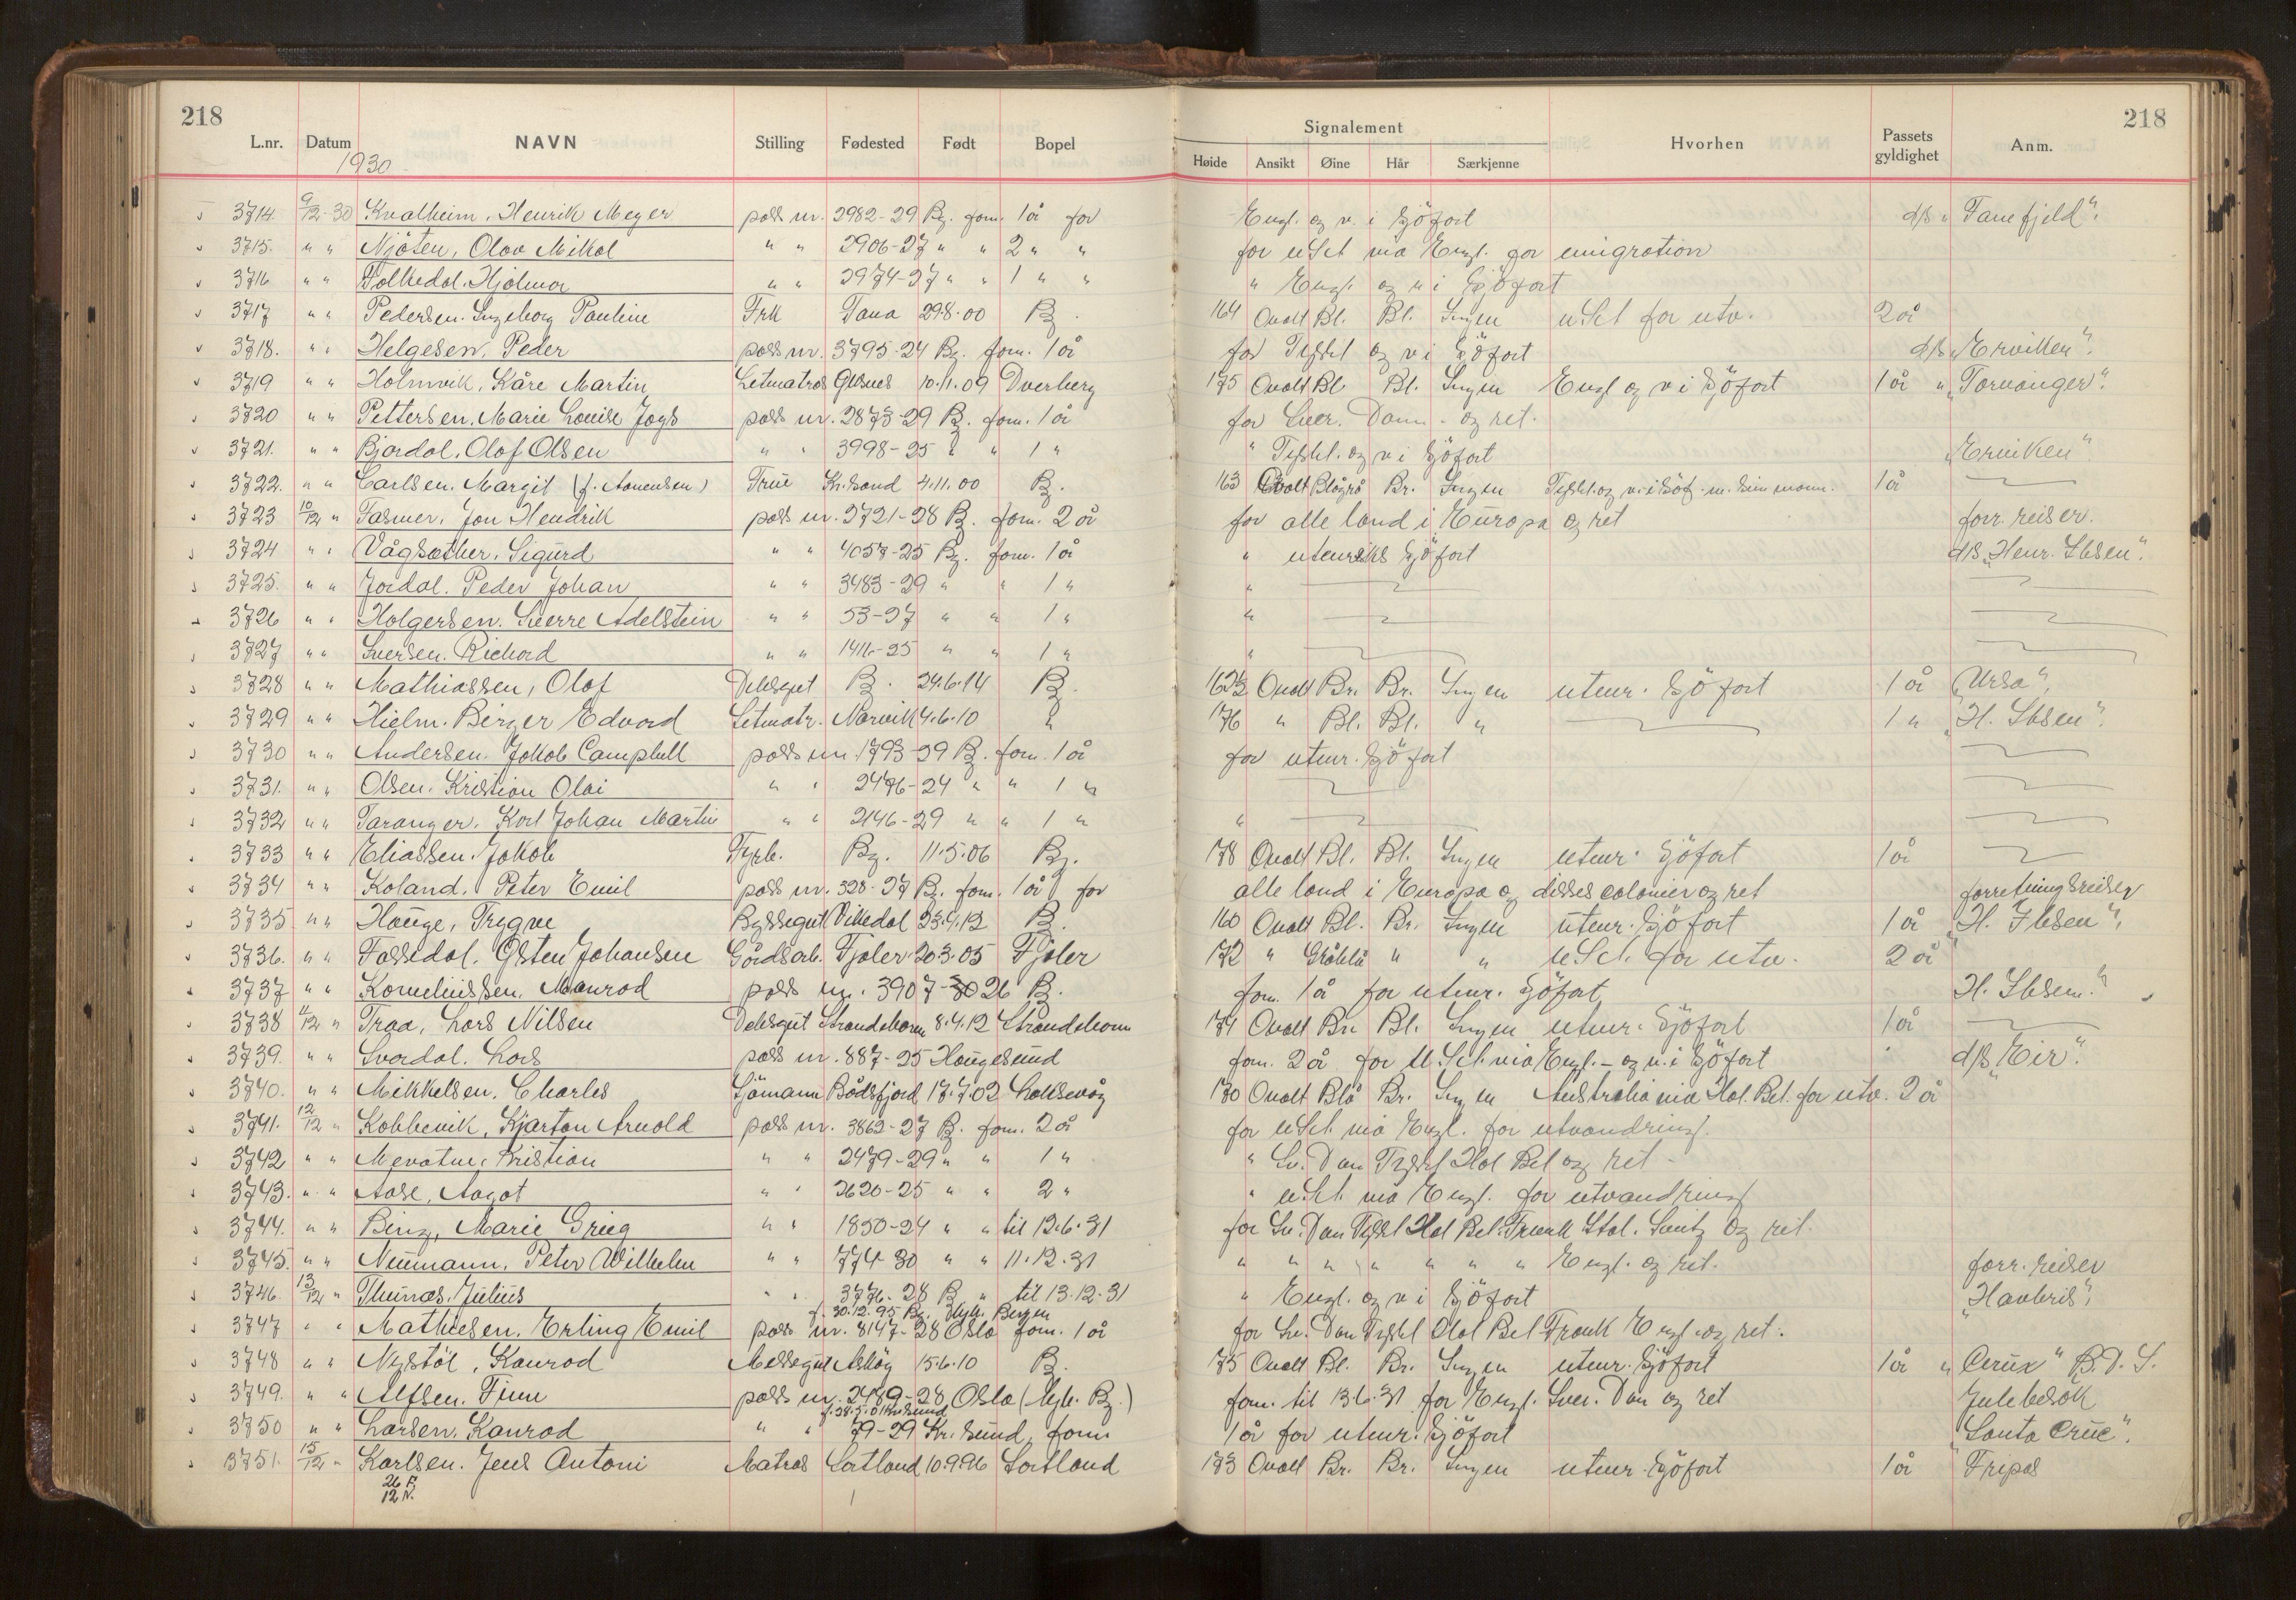 218
218
Signalement
L.nr. Datum NAVN Stilling Fødested Født Bopel Høide Ansikt Øine Hår Særkjenne Hvorhen Passets gyldighet Anm.
1930
3714 9/12-30 Kvalheim, Henrik Meyer pass nr. 2982-29 Bg. forn. 1 år for Engl. og v. i Sjöfart d/s "Tanefjeld".
3715. " " Njøten, Olav Mikal " " 2906-27 " " 2 " " for U.St. via Engl. for emigration
3716 " " Folkedal. Hjalmar " " 2974-27 " " 1 " " " Engl. og v i Sjöfart
3717 " " Pedersen. Ingeborg Pauline Frk Tana 29.8.00 B. 164 Ovalt Bl. Bl. Ingen U.St. for utv. 2 år
3718. " " Helgesen, Peder pass nr. 3795-24 Bg. forn. 1 år for Tyskl og v i Sjöfart d/s "Erviken".
3719 " " Holmvik, Kåre Martin Letmatros Øksnes 10.11.09 Dverberg 175 Ovalt Bl Bl. Ingen Engl og v i Sjöfart 1 år " "Torvanger".
3720 " " Pettersen. Marie Louise Joys pass nr. 2873-29 B. forn. 1 år for Sver. Danm. og ret.
3721. " " Bjordal. Olaf Olsen " " 3998-25 " " 1 " " Tyskl. og v i Sjöfart "Erviken".
3722. " " Carlsen. Margit (f. Aanensen) Frue Kr.sand 4.11.00 B. 163 Ovalt Blågrå Br. Ingen Tyskl. og v. i Sjöf. m. sin mann. 1 år
3723 10/12 " Fasmer. Jan Hendrik pass nr. 2721-28 B. forn. 2 år for alle land i Europa og ret forr. reiser.
3724 " " Vågsæther. Sigurd " " 4057-25 Bg. forn. 1 år " utenriks Sjöfart d/s "Henr. Ibsen".
3725. " " Jordal. Peder Johan " " 3483-29 " " 1 " "
3726 " " Holgersen. Sverre Adelstein " " 53-27 " " 1 " "
3727 " " Iversen. Richard " " 1416-25 " " 1 " "
3728 " " Mathiassen, Olaf Dekksgut B. 24.6.14 B. 162½ Ovalt Br. Br. Ingen utenr. Sjöfart 1 år "Ursa",
3729 " " Hielm. Birger Edvard Letmatr. Narvik 4.6.10 " 176 " Bl. Bl. " 1 " "H. Ibsen".
3730 " " Andersen. Jakob Campbell pass nr. 1793-29 B. forn. 1 år for utenr. Sjöfart
3731. " " Olsen. Kristian Olai " " 2476-24 " " 1 "
3732 " " Taranger. Karl Johan Martin " " 2146-29 " " 1 " "
3733 " " Eliassen. Jakob Fyrb. Bg. 11.5.06 Bg. 178 Ovalt Bl. Bl. Ingen utenr. Sjöfart 1 år
3734 " " Koland. Peter Emil pass nr. 328-27 B. forn. 1 år for alle land i Europa og disses colonier og ret forretningsreiser
3735 " " Hauge, Trygve Byssegut Vikedal 23.4.12 B. 160 Ovalt Bl. Br. Ingen utenr. Sjöfart 1 år "H. Ibsen".
3736. " " Fossedal. Østen Johansen Gårdsarb. Fjaler 20.3.05 Fjaler 172 " Gråblå " " U.St. for utv. 2 år
3737 " " Korneliussen. Monrad pass nr. 3907-26 B. forn. 1 år for utenr. Sjöfart H. Ibsen."
3738 11/12 " Traa, Lars Nilsen Dekksgut Strandebarm 8.4.12 Strandebarm 174 Ovalt Br. Bl. Ingen utenr. Sjöfart 1 år
3739. " " Svardal. Lars pass nr. 887-25 Haugesund forn. 2 år for U.St. via Engl. - og v. i Sjöfart d/s "Eir".
3740. " " Mikkelsen. Charles Sjömann Bådsfjord 17.7.02 Laksevåg 170 Ovalt Blå Br. Ingen Australia via Hol. Bel. for utv. 2 år
3741. 12/12 " Kobbevik, Kjartan Arnold pass nr. 3862-27 B. forn. 2 år for U.St. via Engl. for utvandring.
3742 " " Mevatne. Kristian " " 2479-29 " " 1 " " Sv. Dan Tyskl Hol Bel og ret
3743. " " Aase, Aagot " " 2620-25 " " 2 " " U.St. via Engl. for utvandring
3744. " " Binz, Marie Grieg " " 1850-24 " " til 12.6.31 for Sv. Dan Tyskl Hol Bel. Frank Ital. Sveitz og ret.
3745. " " Neumann, Peter Wilhelm " " 774-30 " " 11.12.31 " " " " " " " Engl. og ret. forr. reiser
3746. 13/12 " Thunæs. Julius " " 3776-28 B " til 13.12.31 " Engl. og v i Sjöfart "Havbris".
f. 30.12.95 Bg. Bergen
3747 " " Mathiesen. Erling Emil pass nr. 8147-28 Oslo forn. 1 år for Sv. Dan Tyskl Hol Bel Frank Engl. og ret.
3748 " " Nystøl, Konrad Messegut Askøy 15.6.10 B. 175 Ovalt Bl. Br. Ingen utenr. Sjöfart 1 år " "Crux" B.D.S.
3749. " " Alfsen. Finn pass nr. 2489-28 Oslo forn. til 13.6.31 for Engl. Sver. Dan og ret Julebesøk
3750 " " Larsen. Konrad " " 79-29 Kr.sund, forn 1 år for utenr. Sjöfart "Santa Cruz".
3751. 15/12 " Karlsen. Jens Antoni Matros Sortland 10.9.96 Sortland 173 Ovalt Br. Br. Ingen utenr. Sjöfart 1 år "Fripas
26 F.
12 N.